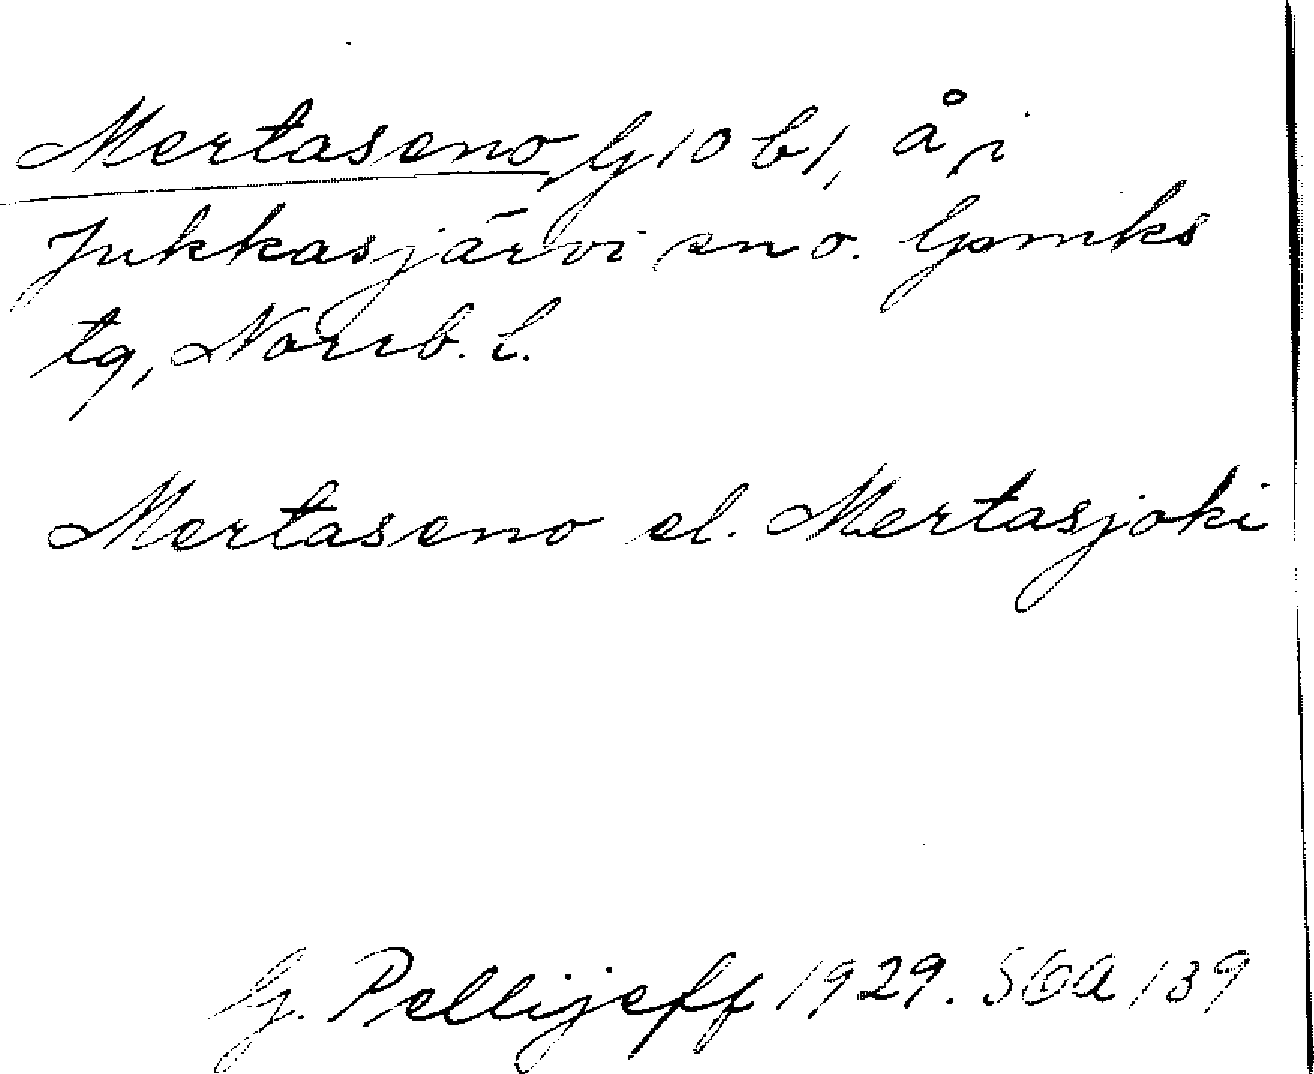 Mertaseno, G 10 b 1, å i
Jukkasjärvi sn o. Gpmks
tg, Norrb. l.
Mertaseno el. Mertasjoki
G. Pellijeff 1929. SOA 139